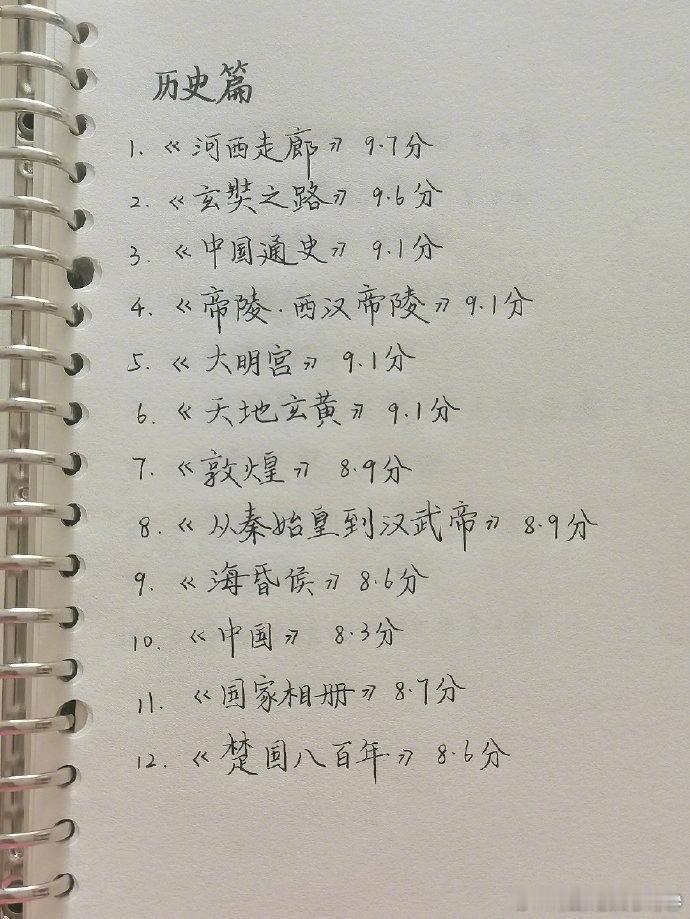 历史篇
1. 《河西走廊》 9.7分
2. 《玄奘之路》 9.6分
3. 《中国通史》 9.1分
4. 《帝陵·西汉帝陵》 9.1分
5. 《大明宫》 9.1分
6. 《天地玄黄》 9.1分
7. 《敦煌》 8.9分
8. 《从秦始皇到汉武帝》 8.9分
9. 《海昏侯》 8.6分
10. 《中国》 8.3分
11. 《国家相册》 8.7分
12. 《楚国八百年》 8.6分